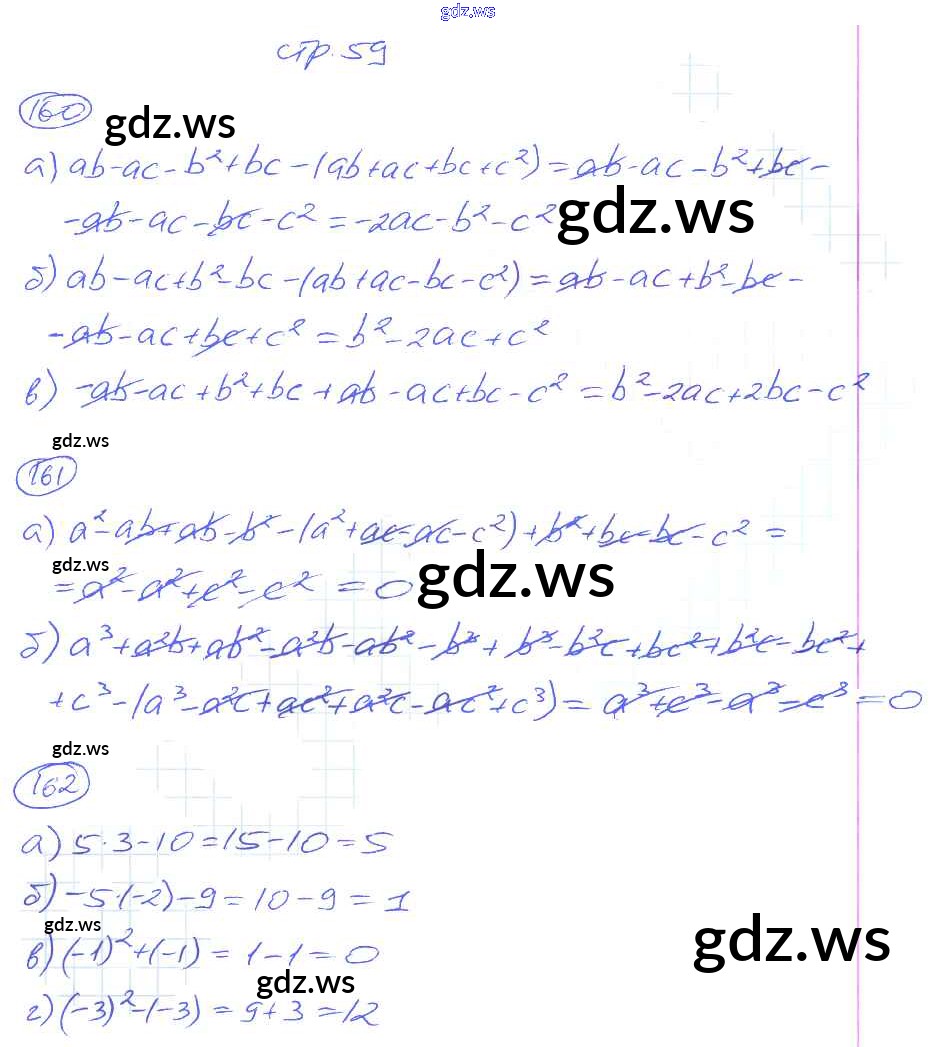 gdz.ws
стр. 59
160
gdz.ws
а) ab-ac-b²+bc-(ab+ac+bc+c²)=ab-ac-b²+bc-
-ab-ac-bc-c²=-2ac-b²-c²
gdz.ws
б) ab-ac+b²-bc-(ab+ac-bc-c²)=ab-ac+b²-bc-
-ab-ac+bc+c²=b²-2ac+c²
в) -ab-ac+b²+bc+ab-ac+bc-c²=b²-2ac+2bc-c²
gdz.ws
161
а) a²-ab+ab-b²-(a²+ac-ac-c²)+b²+bc-bc-c²=
gdz.ws
=a²-a²+c²-c²=0
gdz.ws
б) a³+a²b+ab²-a²b-ab²-b³+b³-b²c+bc²+b²c-bc²+
+c³-(a³-a²c+ac²+a²c-ac²+c³)=a³+c³-a³-c³=0
gdz.ws
162
а) 5·3-10=15-10=5
б) -5·(-2)-9=10-9=1
gdz.ws
в) (-1)²+(-1)=1-1=0
gdz.ws
gdz.ws
г) (-3)²-(-3)=9+3=12